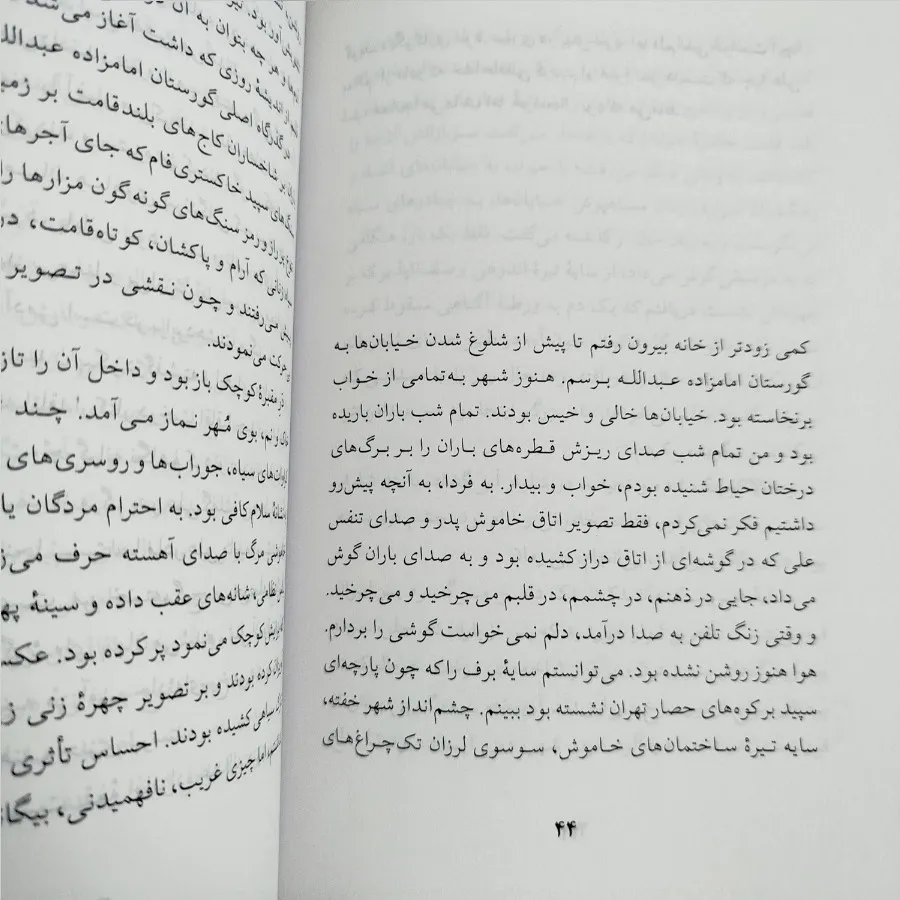 کمی زودتر از خانه بیرون رفتم تا پیش از شلوغ شدن خیابان‌ها به
گورستان امامزاده عبدالله برسم. هنوز شهر به‌تمامی از خواب
برنخاسته بود. خیابان‌ها خالی و خیس بودند. تمام شب باران باریده
بود و من تمام شب صدای ریزش قطره‌های باران را بر برگ‌های
درختان حیاط شنیده بودم، خواب و بیدار. به فردا، به آنچه پیش‌رو
داشتیم فکر نمی‌کردم، فقط تصویر اتاق خاموش پدر و صدای تنفس
علی که در گوشه‌ای از اتاق دراز کشیده بود و به صدای باران گوش
می‌داد، جایی در ذهنم، در چشمم، در قلبم می‌چرخید و می‌چرخید.
و وقتی زنگ تلفن به صدا درآمد، دلم نمی‌خواست گوشی را بردارم.
هوا هنوز روشن نشده بود. می‌توانستم سایهٔ برف را که چون پارچه‌ای
سپید بر کوه‌های حصار تهران نشسته بود ببینم. چشم‌انداز شهر خفته،
سایه تیرهٔ ساختمان‌های خاموش، سوسوی لرزان تک‌چراغ‌های
۴۴
و هر چه بتوان به آن
از اندیشهٔ روزی که داشت آغاز می‌شد
در گذرگاه اصلی گورستان امامزاده عبدالله
بر شاخساران کاج‌های بلندقامت بر زمین
سپید خاکستری‌فام که جای آجرهای
راز و رمز سنگ‌های گونه‌گون مزارها را
که آرام و پاکشان، کوتاه‌قامت، در
می‌رفتند و چون نقشی در تصویر
حرکت می‌نمودند.
در مقبرهٔ کوچک باز بود و داخل آن را تازه
و نم، بوی مُهر نماز می‌آمد. چند
سیاه، جوراب‌ها و روسری‌های
سلام کافی بود. به احترام مردگان یا
مرگ با صدای آهسته حرف می‌زدند
نظامی، شانه‌های عقب داده و سینهٔ پهن
کوچک می‌نمود پر کرده بود. عکس
کرده بودند و بر تصویر چهرهٔ زنی
سیاهی کشیده بودند. احساس تأثری
اما چیزی غریب، نافهمیدنی، بیگانه